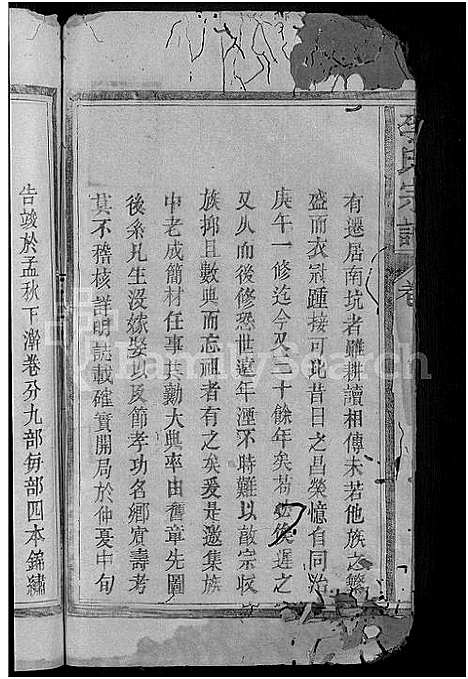 李氏宗譜
卷
有遷居南坑者雖耕讀相傳未若他族之繁
盛而衣冠踵接可比昔日之昌榮憶自同治
庚午一修迄今又三十餘年矣苟必俟遲之
又久而後修恐世遠年湮不時難以敵宗收
族抑且數典而忘祖者有之矣爰是邀集族
中老成簡材任事共勷大典率由舊章先圖
後系凡生沒嫁娶以及節孝功名鄉賓壽考
莫不稽核詳明誌載確實開局於仲夏中旬
告竣於孟秋下澣卷分九部每部四本錦繡
FamilySearch